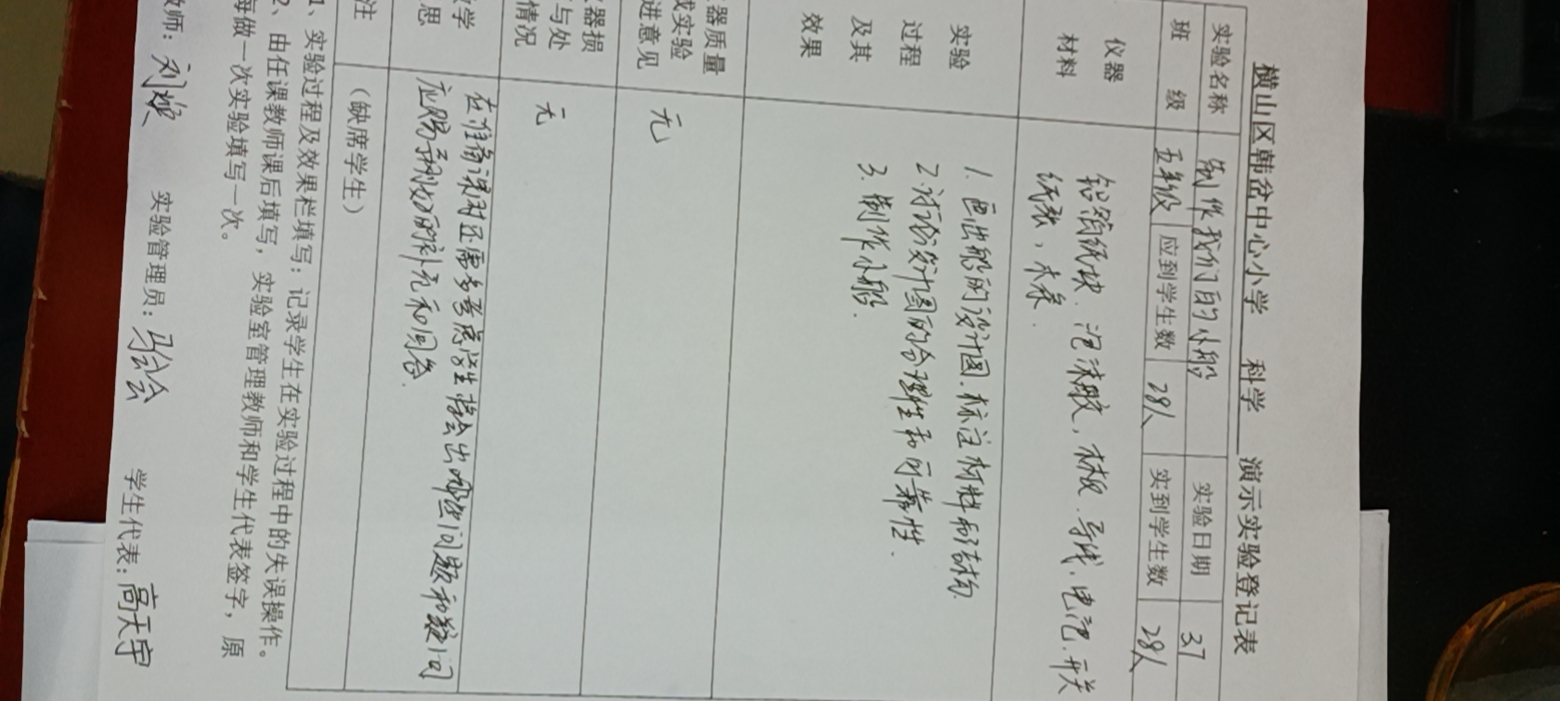 横山区韩岔中心小学 科学 演示实验登记表
实验名称 制作我们的小船 实验日期 3.7
班 级 五年级 应到学生数 28人 实到学生数 28人
仪器
材料
铅箔纸块、泡沫胶,木板、导线、电池、开关
纸张,木条.
实验
过程
及其
效果
1. 画出船的设计图.标注材料和结构
2.讨论设计图的合理性和可靠性.
3.制作小船.
器质量
或实验
进意见
无
器损
与处
情况
无
学
思
在准备课时还需多考虑学生将会出哪些问题和疑问
应赐予则好的补充和回答.
注
(缺席学生)
1、实验过程及效果栏填写:记录学生在实验过程中的失误操作。
2、由任课教师课后填写,实验室管理教师和学生代表签字,原
每做一次实验填写一次。
教师: 刘焕 实验管理员: 马会会 学生代表: 高天宇